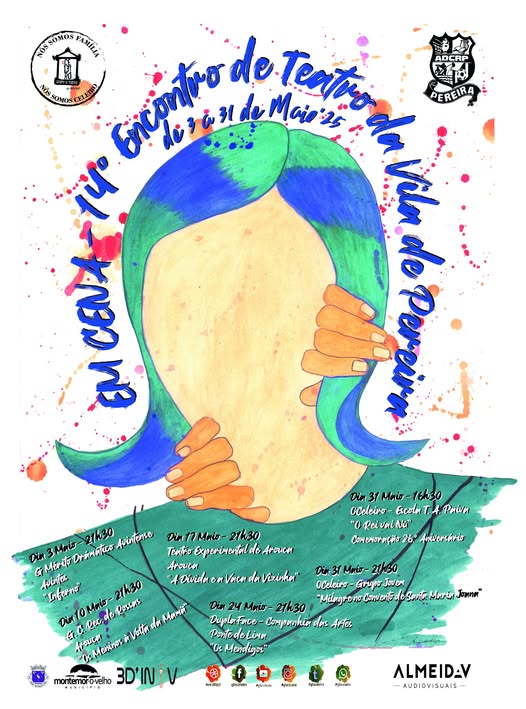 NÓS SOMOS FAMÍLIA
NÓS SOMOS CELEIRO
ADCRP
PEREIRA
EM CENA - 14º Encontro de Teatro da Vila de Pereira
de 3 a 31 de Maio'25
Dia 3 Maio - 21h30
G. Mérito Dramático Avintense
Avintes
"Inferno"
Dia 10 Maio - 21h30
G. C. Rec. de Rossas
Arouca
"Os Meninos à Volta da Mamã"
Dia 17 Maio - 21h30
Teatro Experimental de Arouca
Arouca
"A Dívida e a Vaca da Vizinha"
Dia 24 Maio - 21h30
DuplaFace - Companhia das Artes
Ponte de Lima
"Os Mendigos"
Dia 31 Maio - 16h30
OCeleiro - Escola T. A. Paiva
"O Rei vai Nú"
Comemoração 26º Aniversário
Dia 31 Maio - 21h30
OCeleiro - Grupo Jovem
"Milagre no Convento de Santa Maria Joana"
montemor-o-velho
MUNICÍPIO
ALMEIDAV
AUDIOVISUAIS